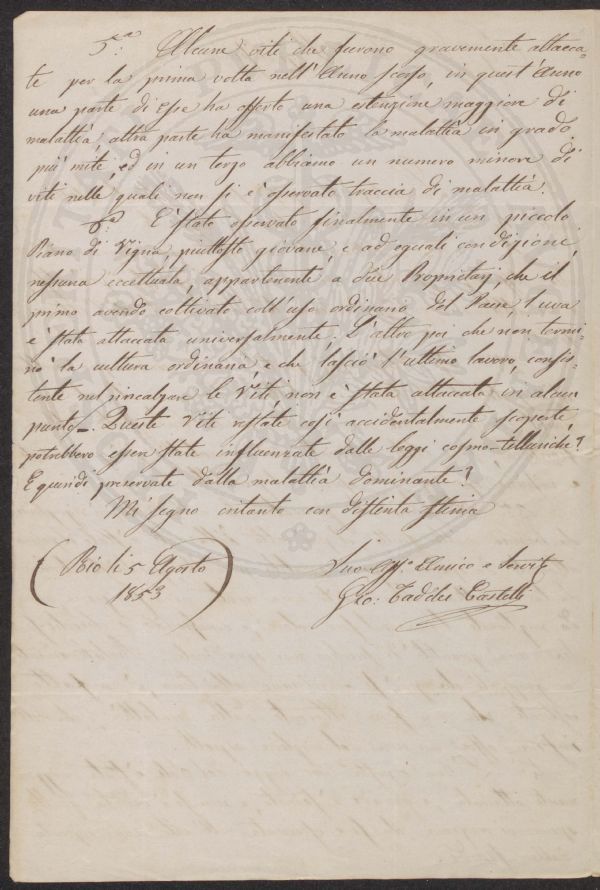 5.ª Alcune viti che furono gravemente attacca-
te per la prima volta nell'Anno scorso, in quest'Anno
una parte di esse ha offerto una estenzine maggiore di
malattia, altra parte ha manifestato la malattia in grado
più mite, ed in un terzo abbiamo un numero minore di
viti nelle quali non si è osservato traccia di malattia.
6.ª È stato osservato finalmente in un piccolo
Piano di Vigna, piuttosto giovane, e ad eguali condizioni,
nessuna eccettuata, appartenente a due Proprietarj, che il
primo avendo coltivato coll'uso ordinario del Paese, l'uva
è stata attaccata universalmente. L'altro poi che non termi-
nò la cultura ordinaria e che lasciò l'ultimo lavoro, consis-
tente nel rincalzare le Viti, non è stata attaccata in alcun
punto. Queste Viti restate così accidentalmente scoperte
potrebbero essere state influenzate dalle leggi cosmo-telluriche?
E quindi preservate dalla malattia dominante?
Mi segno intanto con distinta stima
(Rio li 5 Agosto
1853)
Suo Aff.º Amico e Servit.
Gio: Taddei Castelli